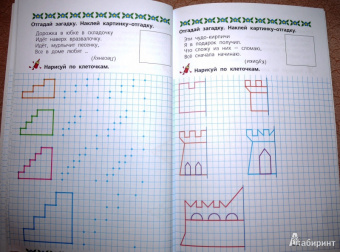 Отгадай загадку. Наклей картинку-отгадку.
Дорожка в юбке в складочку
Идёт наверх вразвалочку.
Идёт, мурлычит песенку,
Все в доме любят ...
Нарисуй по клеточкам.
Отгадай загадку. Наклей картинку-отгадку.
Эти чудо-кирпичи
Я в подарок получил,
Что сложу из них – сломаю,
Всё сначала начинаю.
(Кубики)
Нарисуй по клеточкам.
Лабиринт